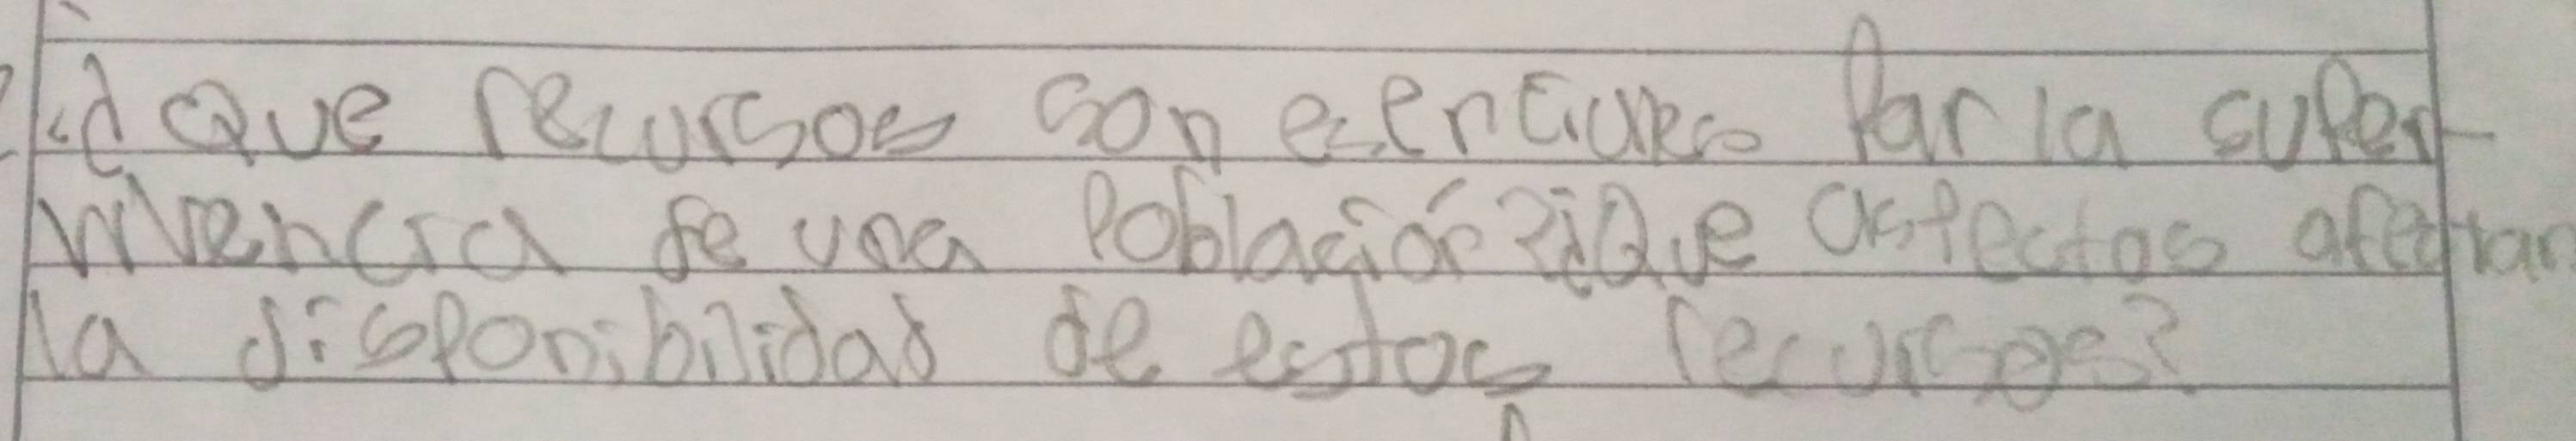 ¿Que recursos son esenciales par la super-
vivencia de una Población? ¿Que aspectos afectan
la disponibilidad de estos recursos?